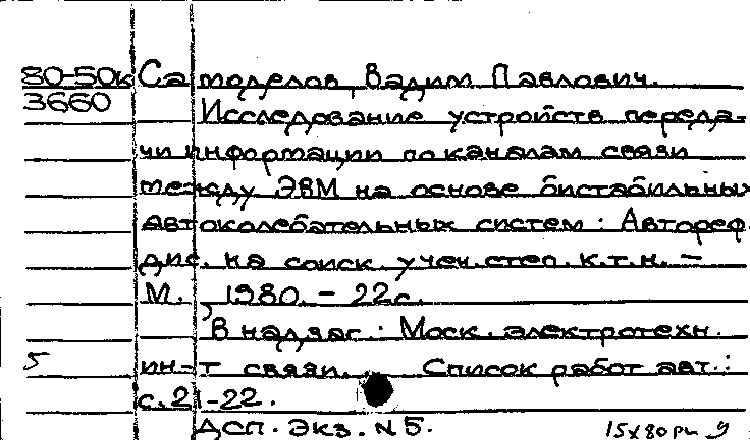 80-50к Самоделов, Вадим Павлович.
3660
Исследование устройств переда-
чи информации по каналам связи
между ЭВМ на основе бистабильных
автоколебательных систем: Автореф.
дис. на соиск. учен. степ. к.т.н. -
М., 1980. - 22с.
В надзаг.: Моск. электротехн.
5 ин-т связи. Список работ авт.:
с. 21-22.
ДСП. Экз. N 5.